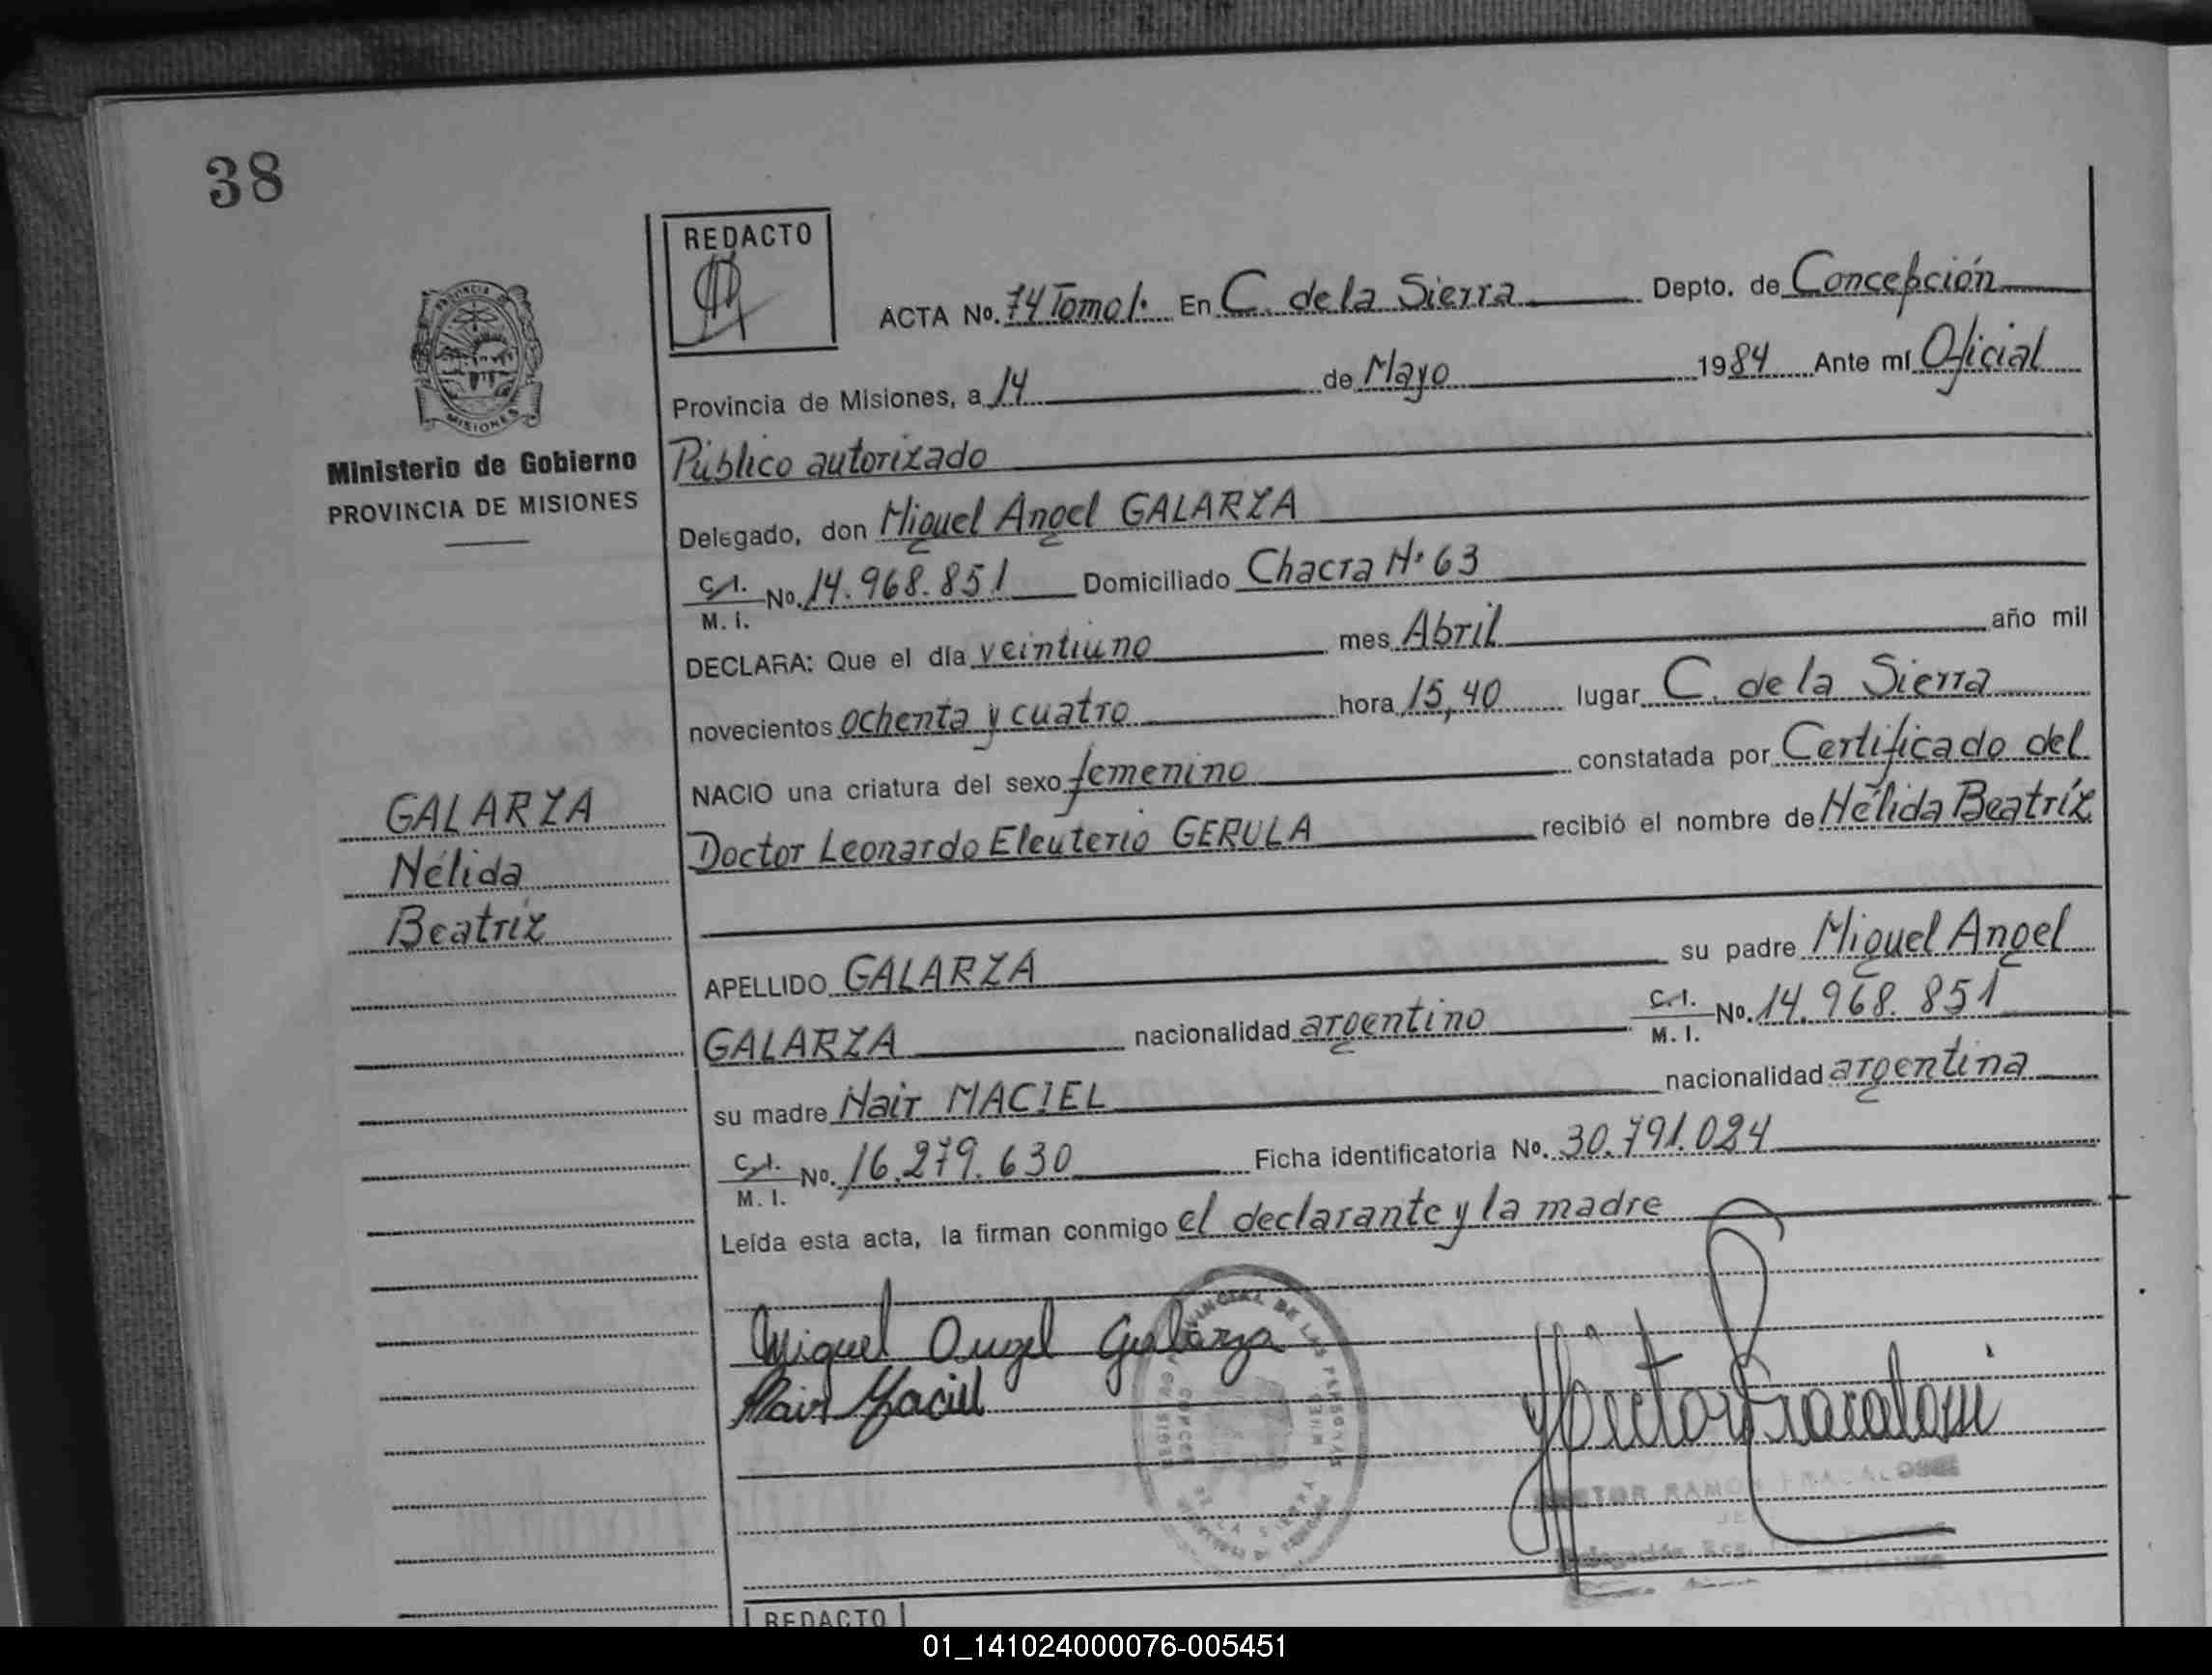 38
REDACTO
ACTA No. 74 Tomo I. En C. de la Sierra Depto. de Concepción
Provincia de Misiones, a 14 de Mayo 1984 Ante mí Oficial
Público autorizado
Delegado, don Miguel Angel GALARZA
C.I. M. I. No. 14.968.851 Domiciliado Chacra Nº 63
DECLARA: Que el día veintiuno mes Abril año mil
novecientos ochenta y cuatro hora 15,40 lugar C. de la Sierra
NACIO una criatura del sexo femenino constatada por Certificado del
Doctor Leonardo Eleuterio GERULA recibió el nombre de Nélida Beatríz
APELLIDO GALARZA su padre Miguel Angel
GALARZA nacionalidad argentino C.I. M. I. No. 14.968.851
su madre Nair MACIEL nacionalidad argentina
C.I. M. I. No. 16.279.630 Ficha identificatoria No. 30.791.024
Leída esta acta, la firman conmigo el declarante y la madre
Miguel Angel Galarza
Nair Maciel
PROVINCIA DE MISIONES
Ministerio de Gobierno
PROVINCIA DE MISIONES
GALARZA
Nélida
Beatríz
DE LAS PERSONAS
DE LA SIERRA
RAMON
REDACTO
01_141024000076-005451